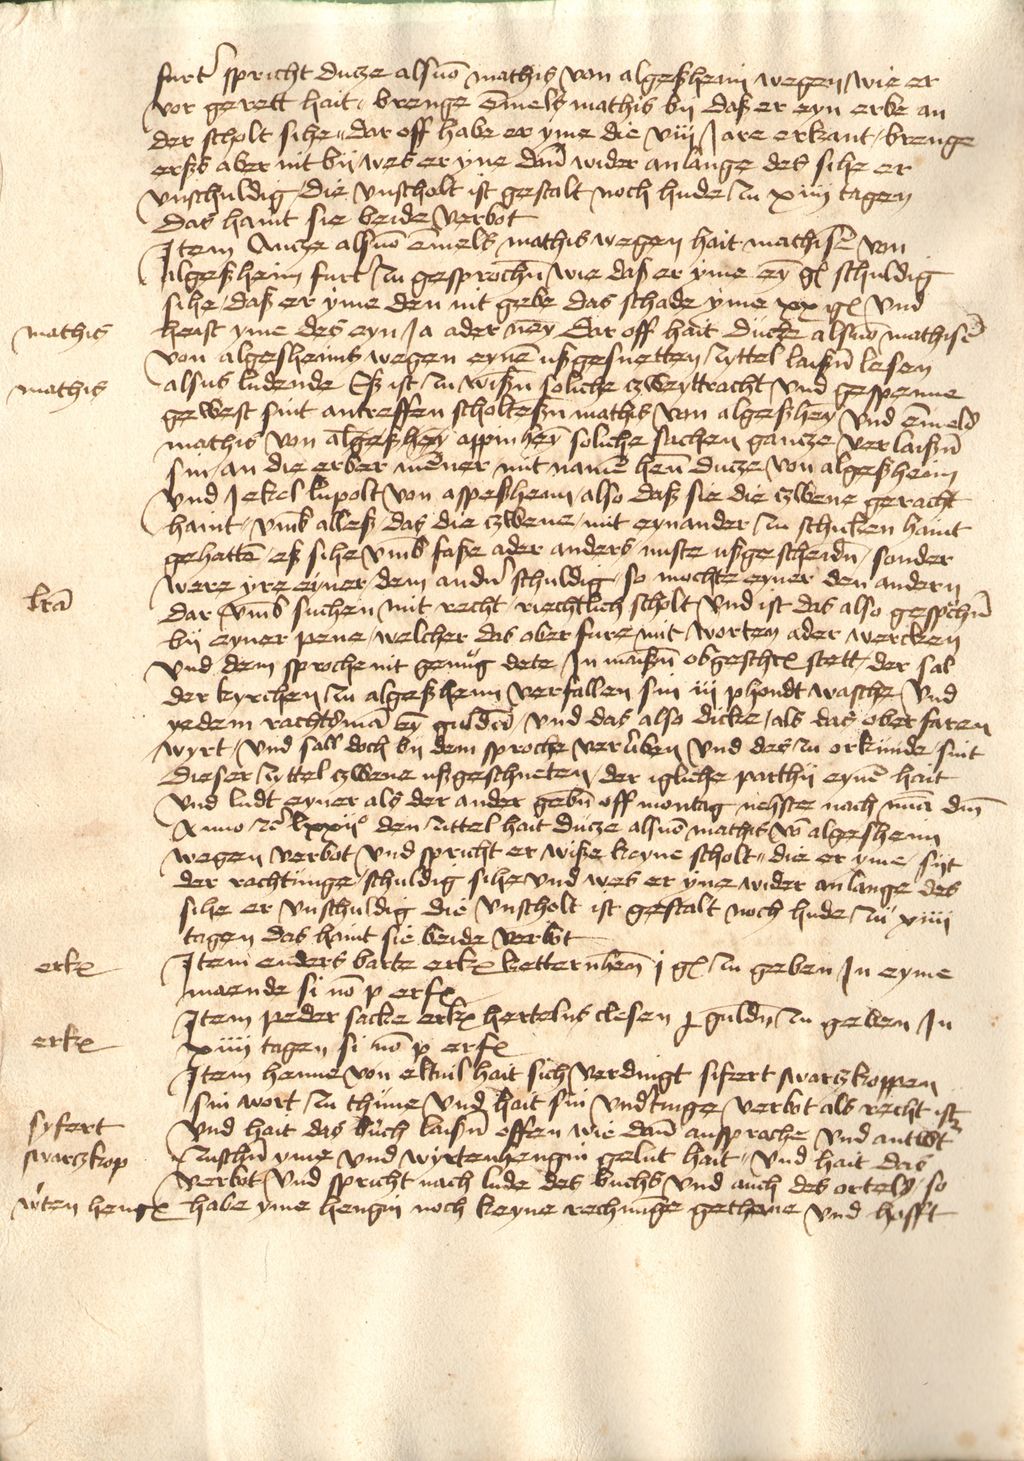 furt' spricht Ducze alsuō mathis von algeßheim wegen / wie er
vor gerett hait / brenge Emels mathis bij daß er eyn erbe an
der scholt sihe // dar off habe er yme die viij Jare erkant / brenge
erßs aber nit bij / wes er yne dañ wider anlange des sihe er
vnschuldig / die vnscholt ist gestalt noch hude zu xiiij tagen
Das haint sie beide verbot
Item Ancze alsuō emels mathis wegen hait mathisē von
algeßheim furt' zu gesprochin / wie daß er yme eȳ gl schuldig
sihe / daß er yme den nit gebe das schade yme xx gl vnd
mathis heist yme des eyn / Ja ader neȳ Dar off hait Ducze alsuō mathisē
von algesheims wegen eynē ußgesnetten zyttel laißin lesen
mathis alsus ludende Eß ist zu wißin soliche czweyttracht vnd gespenne
gewest sint antreffen scholteßin mathis von algeßheȳ vnd Emelß
mathis von algeßheȳ appinheȳ soliche sachen gancze verlaißin
sin / an die erber menner mit namē Heñ Ducze von algeßheim
vnd Jekel lupolt von aspeßheim / also daß sie die czwene geracht
haint / vmb alleß das die czwene mit eynander zu schicken haint
gehattē / eß sihe vmb faße ader anders nuste ußgescheidn / sonder
were yre eyner dem andn' schuldig / so mochte eyner den andern
lrā dar vmb suchen mit recht / riechtlich scholt vnd ist das also gesp̄chin
bij eyner pene / welcher das ober fure mit worten ader wercken
vnd dem sproche nit genug dete / In maißin obgeschr stett / der sal
der kyrchen zu algeßheim verfallen sin iij phondt wasche / vnd
yedem rachtßmā eȳ guldē / vnd das also dicke / als das oberfaren
wyrt / vnd sall doch bij dem sproche verliben vnd des zu orkunde sint
dieser zyttel czwene ußgeschneten / der igliche parthij eynē hait
vnd ludt eyner als der ander gebin off montag nehste nach
Anno lxxijº den zittel hait Ducze alsuō mathis vō algesheim
wegen verbot vnd spricht er wiße keyne scholt // die er yme / syt
der rachtunge / schuldig sihe vnd wes er yne wider anlange des
sihe er vnschuldig die vnscholt ist gestalt noch hude zu xiiij
tagen das haint sie beide verbot
erkˢ Item enders barte erkˢ ketternheñ j gl zu geben In eyme
maende si nō p erfˢ
Item peder sacke erkˢ hertelns clesen guldn zu geben In
erkˢ xiiij tagen si nō p erfˢ
Item henne von eltuil hait sich verdingt sifert swarczkoppen
sin wort zu thune vnd hait sin vndtinge verbot als recht ist
syfert vnd hait das buch laißin offen wie dañ ansprache vnd antwt'
swarczkop zuschin yme vnd wyrtenhengin gelut hait / vnd hait das
verbot vnd spricht nach lude des buchs vnd auch des ortels / so
w'ten hengˢ habe yme hengin noch keyne rechnūge gethane vnd hofft